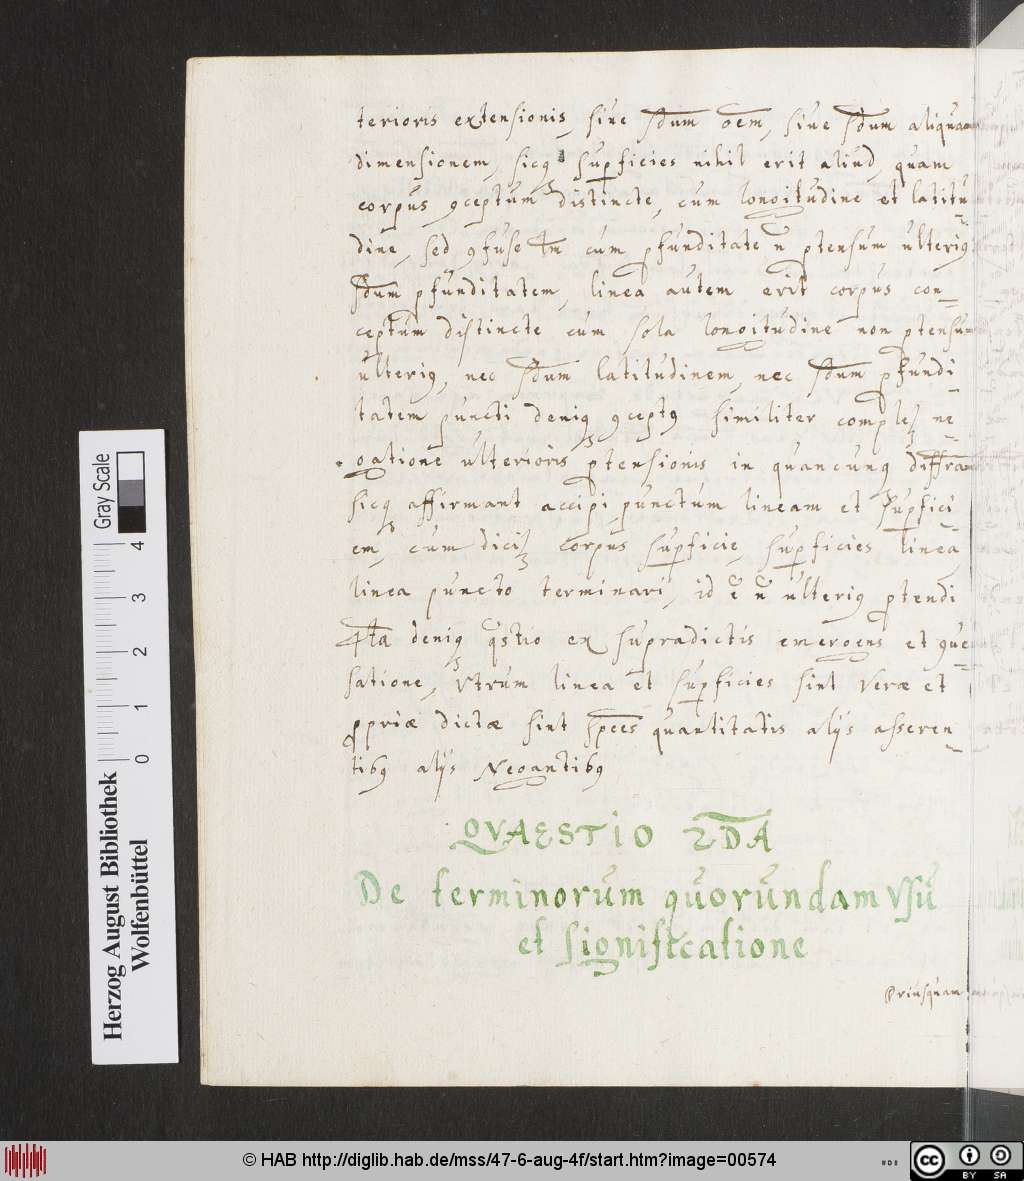 terioris extensionis, siue s̄dum oēm, siue s̄dum aliquam
dimensionem, sicq; supficies nihil erit aliud, quam
corpus ꝯceptum distincte, cum longitudine et latitu-
dine, sed ꝯfuse tm̄ cum ꝓfunditate ñ ꝓtensum ulteriꝰ
s̄dum ꝓfunditatem, linea autem erit corpus con-
ceptum distincte cum sola longitudine non ꝓtensum
ulteriꝰ, nec s̄dum latitudinem, nec s̄dum ꝓfundi-
tatem puncti deniq; ꝯceptꝰ similiter ne-
gatione ulterioris ꝓtensionis in quancunq;
sicq; affirmant accipi punctum lineam et supfici-
em, cum corpus supficie, supficies linea,
linea puncto terminari, id ē ñ ulteriꝰ ꝓtendi
4ta deniq; q̄stio ex supradictis emergens et ꝯue-
satione, Vtrum linea et supficies sint veræ et
ꝓpriæ dictæ sint sp̄ees quantitatis alijs asseren-
tibꝰ alijs Negantibꝰ
QVAESTIO 2DA
De terminorum quorundam Vsu
et significatione
Priusquam
Gray Scale
0 1 2 3 4
Herzog August Bibliothek
Wolfenbüttel
© HAB http://diglib.hab.de/mss/47-6-aug-4f/start.htm?image=00574
cc BY SA